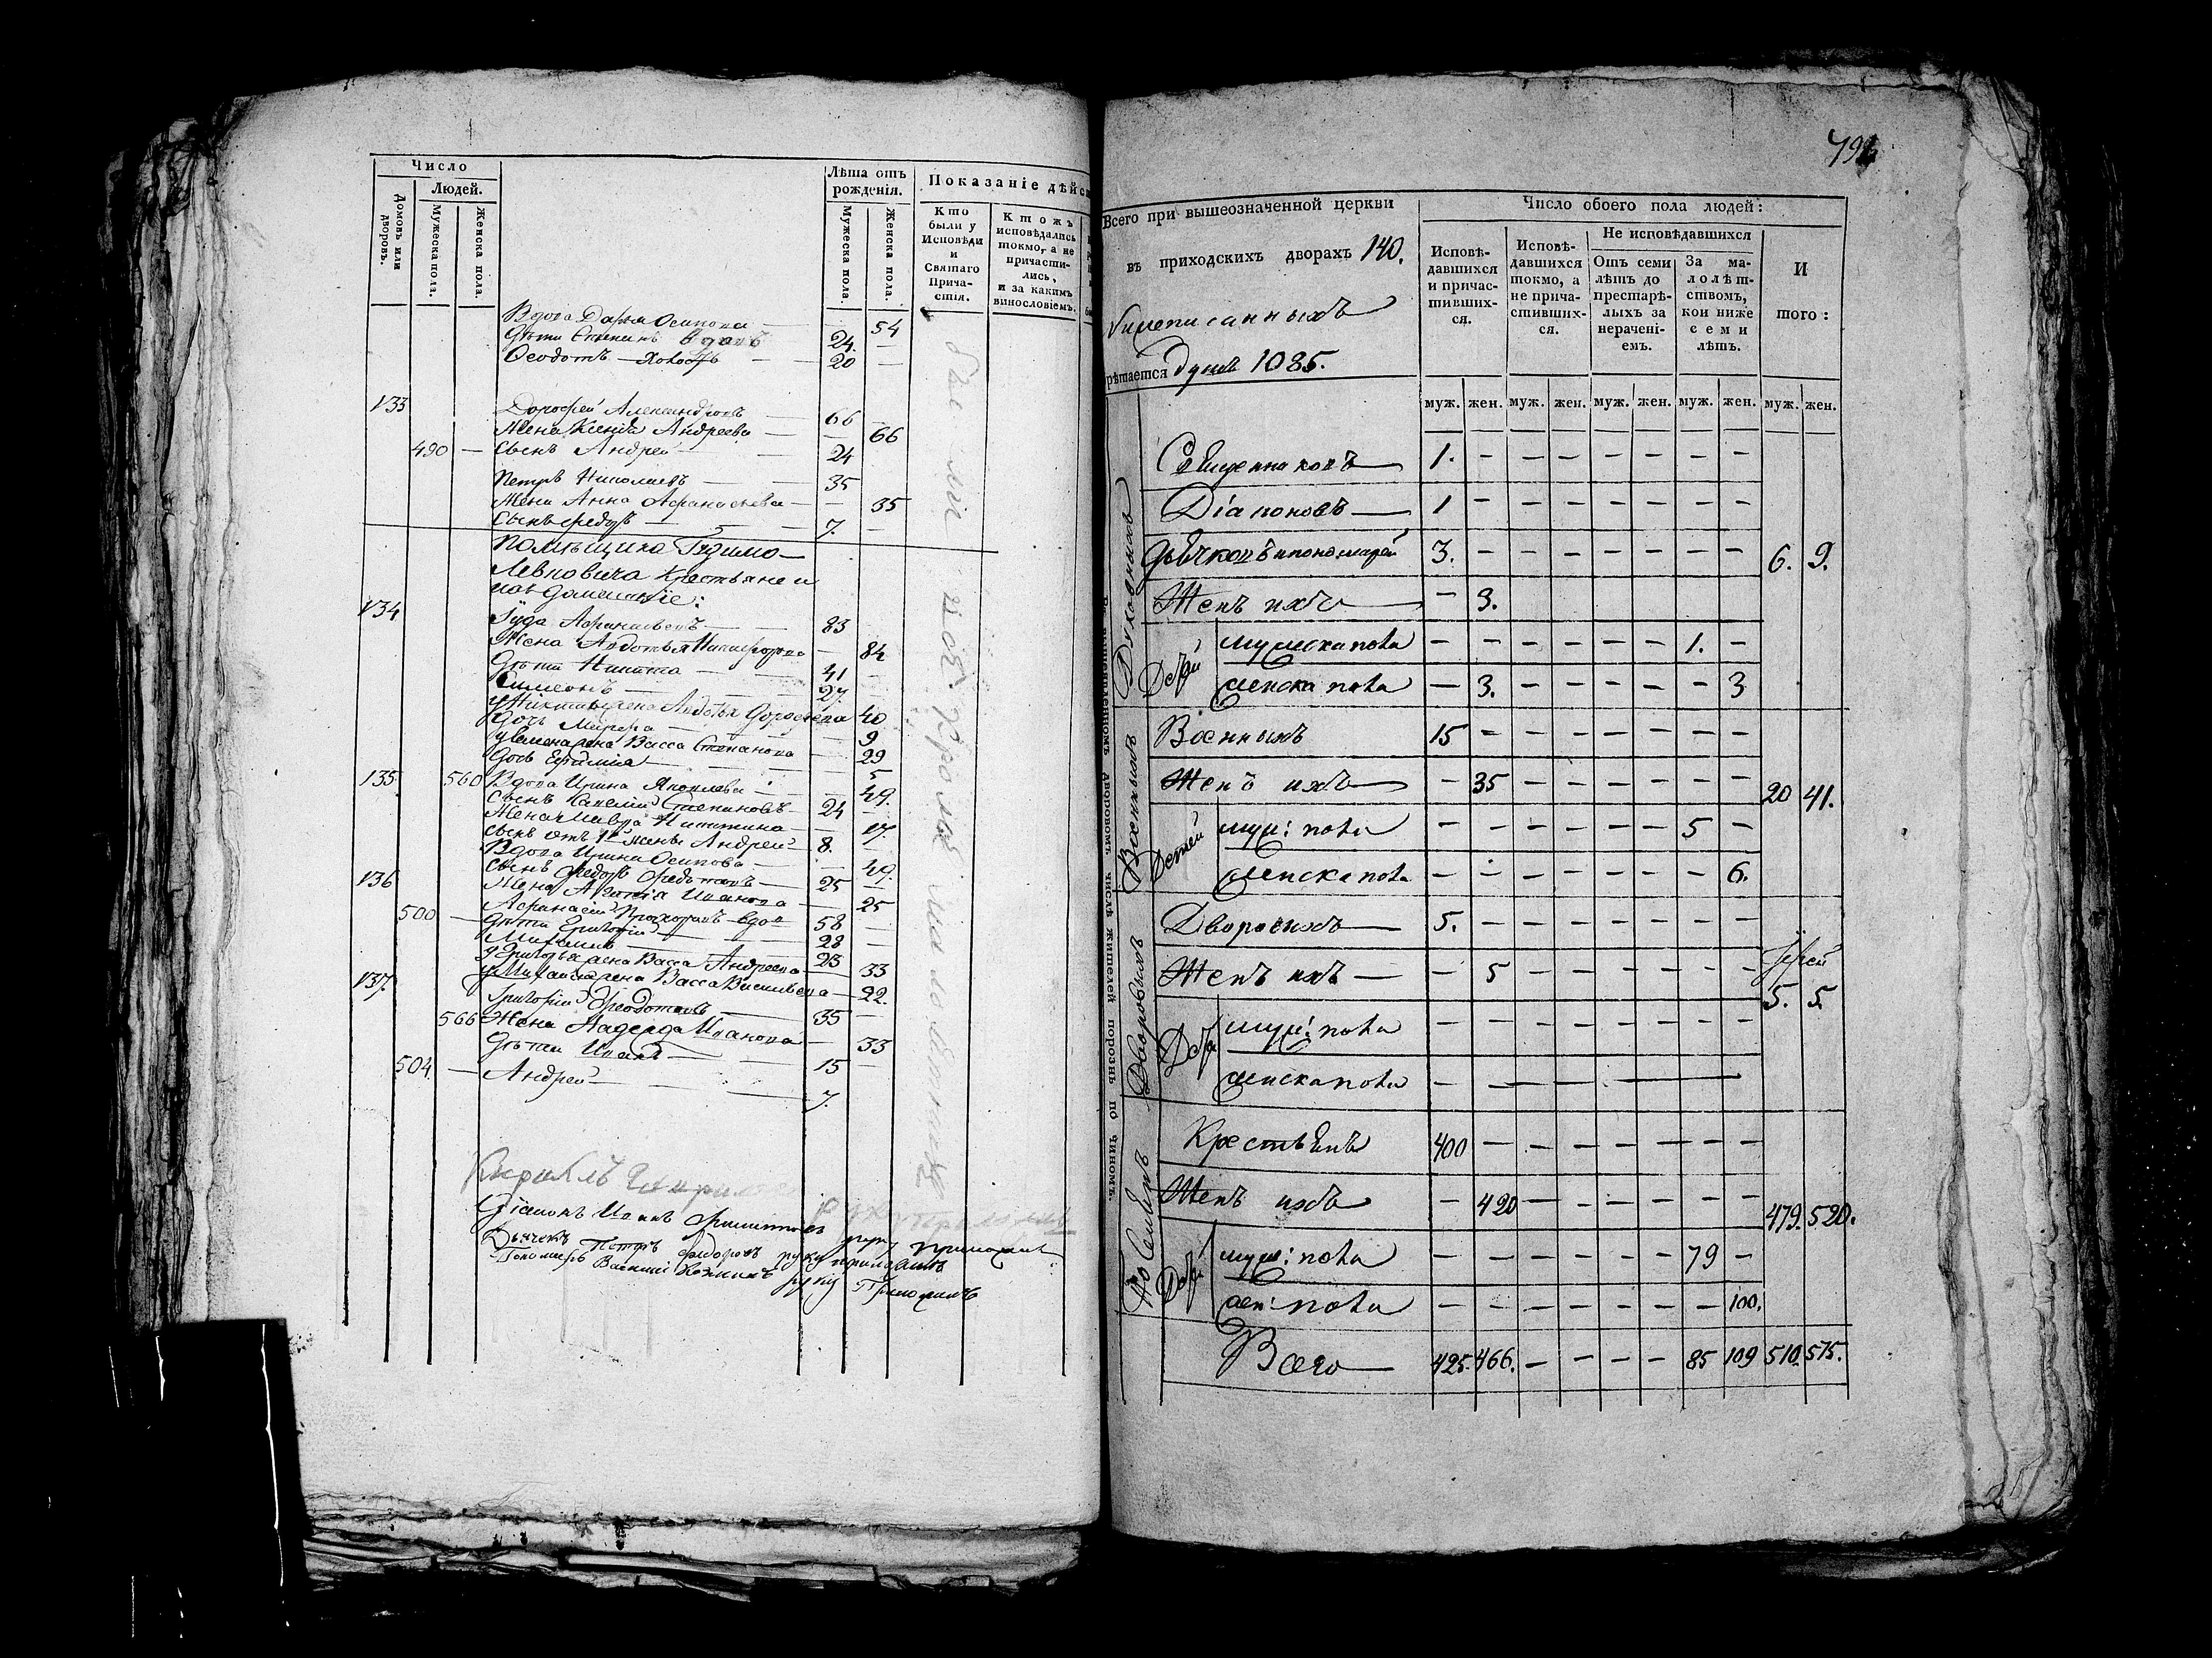 Число
Людей.
Домовъ или дворовъ.
Мужеска пола.
Женска пола.
Лѣта отъ рожденія.
Мужеска пола.
Женска пола.
Показаніе дѣйс
Кто были у Исповѣди и Святаго Причастія.
Ктожъ исповѣдались токмо, а не причастились, и за какимъ винословіемъ.
Вдова Дарья Осипова — 54
Дѣти 24 —
Ѳеодотъ — 20 —
133 Дорофей Александровъ — 66
Жена Ксенія Андреева — 66
490 — Сынъ Андрей — 24
Петръ Николаевъ — 35
Жена Анна Афанасьева — 35
Сынъ Федоръ — 7. —
Помѣщика
Левковича крестьяне и
134 Іуда Афанасьевъ 83
Жена Авдотья Никифорова — 84
Дѣти Никита — 41 —
Симеонъ — 27.
у Никиты жена Авдотья Дорофеева 40
Дочь Марфа — 9
у Симеона жена Васса Степанова — 29
Дочь Евфимія — 5
135. 560 Вдова Ирина Яковлева — 49.
Сынъ Савелій Степановъ — 24 —
Жена Мавра Никитина — 17.
сынъ отъ 1й жены Андрей — 8.
Вдова Ирина Осипова — 49.
136 Сынъ Федоръ Федотовъ — 25 —
Жена Агафія Иванова — 25
500 — Афанасій Прохоровъ вдов 58 —
Дѣти Григорій — 28 —
Михаилъ — 23
у Григорья жена Васса Андреева — 33
у Михаила жена Васса Васильева — 22.
137. Григорій Феодотовъ — 35 —
566 Жена Надежда Иванова — 33
Дѣти Иванъ — 15 —
504. — Андрей — 7.
Діаконъ Иванъ Филиповъ руку приложилъ
Дьячекъ Петръ Федоровъ руку приложилъ
Пономарь Василій Козминъ руку Приложилъ
Всего при вышеозначенной церкви
въ приходскихъ дворахъ 140.
Именписанныхъ
рѣтается душъ 1085.
Число обоего пола людей:
Исповѣдавшихся и причастившихся.
Исповѣдавшихся токмо, а не причастившихся.
Не исповѣдавшихся
Отъ семи лѣтъ до престарѣлыхъ за нераченіемъ.
За малолѣтствомъ, кои ниже семи лѣтъ.
И того:
муж. жен. муж. жен. муж. жен. муж. жен. муж. жен.
Духовныхъ
Священниковъ — 1. — — — — — — —
Діаконовъ — 1 — — — — — — —
Дьячковъ и пономарей 3. — — — — — — — 6. 9.
Женъ ихъ — — 3.
Дѣтей
мужеска пола — — — — — — 1. —
женска пола — 3. — — — — — 3
Военныхъ
Военныхъ 15 — — — — — — —
Женъ ихъ — — 35 — — — — — — 20 41.
Детей
муж: пола — — — — — — 5 —
женска пола — — — — — — — 6.
Дворовыхъ
Дворовыхъ — 5. — — — — — — —
Женъ ихъ — — 5 — — — — — — 5. 5.
Дѣтей
муж: пола — — — — — — — —
женска пола — — — — —
Поселянъ
Крестьянъ 400 — — — — — — —
Женъ ихъ — 420 — — — — — — 479. 520.
Дѣтей
муж: пола — — — — — — 79 —
жен: пола — — — — — — — 100.
Всего — 425. 466. — — — — 85 109 510. 575.